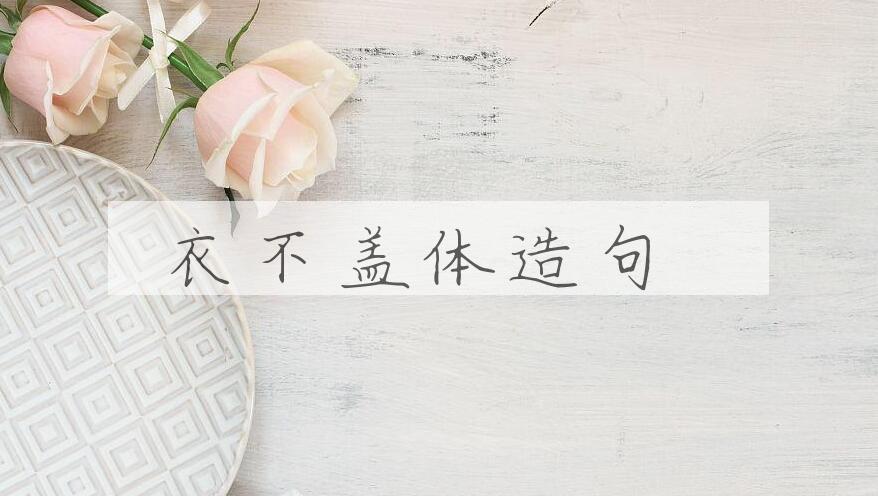 衣不盖体造句